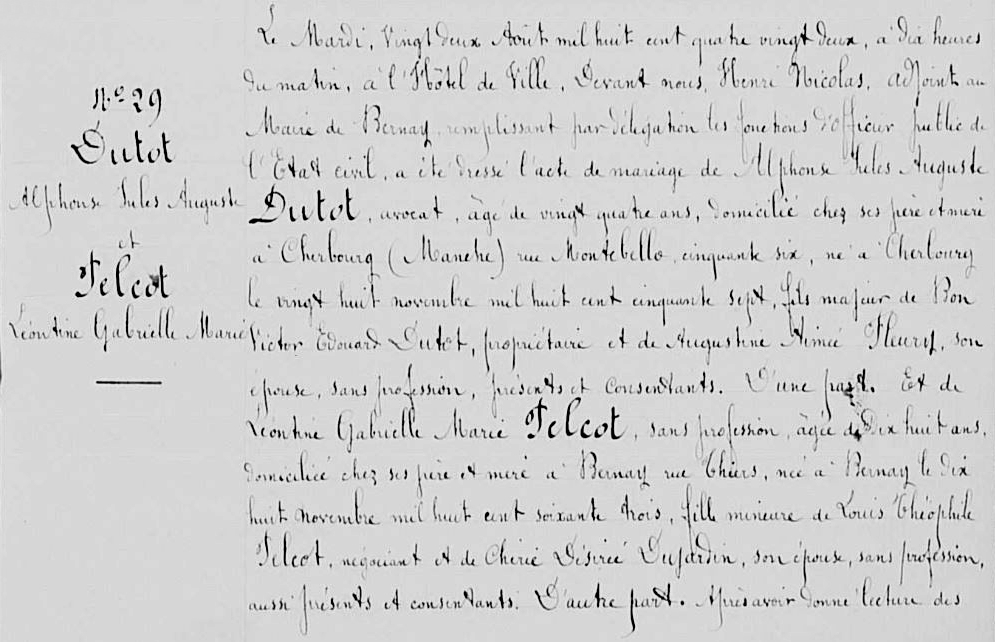 N.º 29
Dutot
Alphonse Jules Auguste
et
Telcot
Léontine Gabrielle Marie
Le Mardi, Vingt deux Août mil huit cent quatre vingt deux, à dix heures
du matin, à l'Hôtel de Ville, Devant nous, Henri Nicolas, adjoint au
Maire de Bernay, remplissant par délégation les fonctions d'officier public de
l'Etat civil, a été dressé l'acte de mariage de Alphonse Jules Auguste
Dutot, avocat, âgé de vingt quatre ans, domicilié chez ses père et mère
à Cherbourg (Manche) rue Montebello, cinquante six, né à Cherbourg
le vingt huit novembre mil huit cent cinquante sept, fils majeur de Bon
Victor Edouard Dutot, propriétaire et de Augustine Aimée Fleury, son
épouse, sans profession, présents et consentants. D'une part. Et de
Léontine Gabrielle Marie Telcot, sans profession, âgée de Dix huit ans,
domiciliée chez ses père et mère à Bernay rue Thiers, née à Bernay le dix
huit novembre mil huit cent soixante trois, fille mineure de Louis Théophile
Telcot, négociant et de Chérie Désirée Dujardin, son épouse, sans profession,
aussi présents et consentants. D'autre part. Après avoir donné lecture des